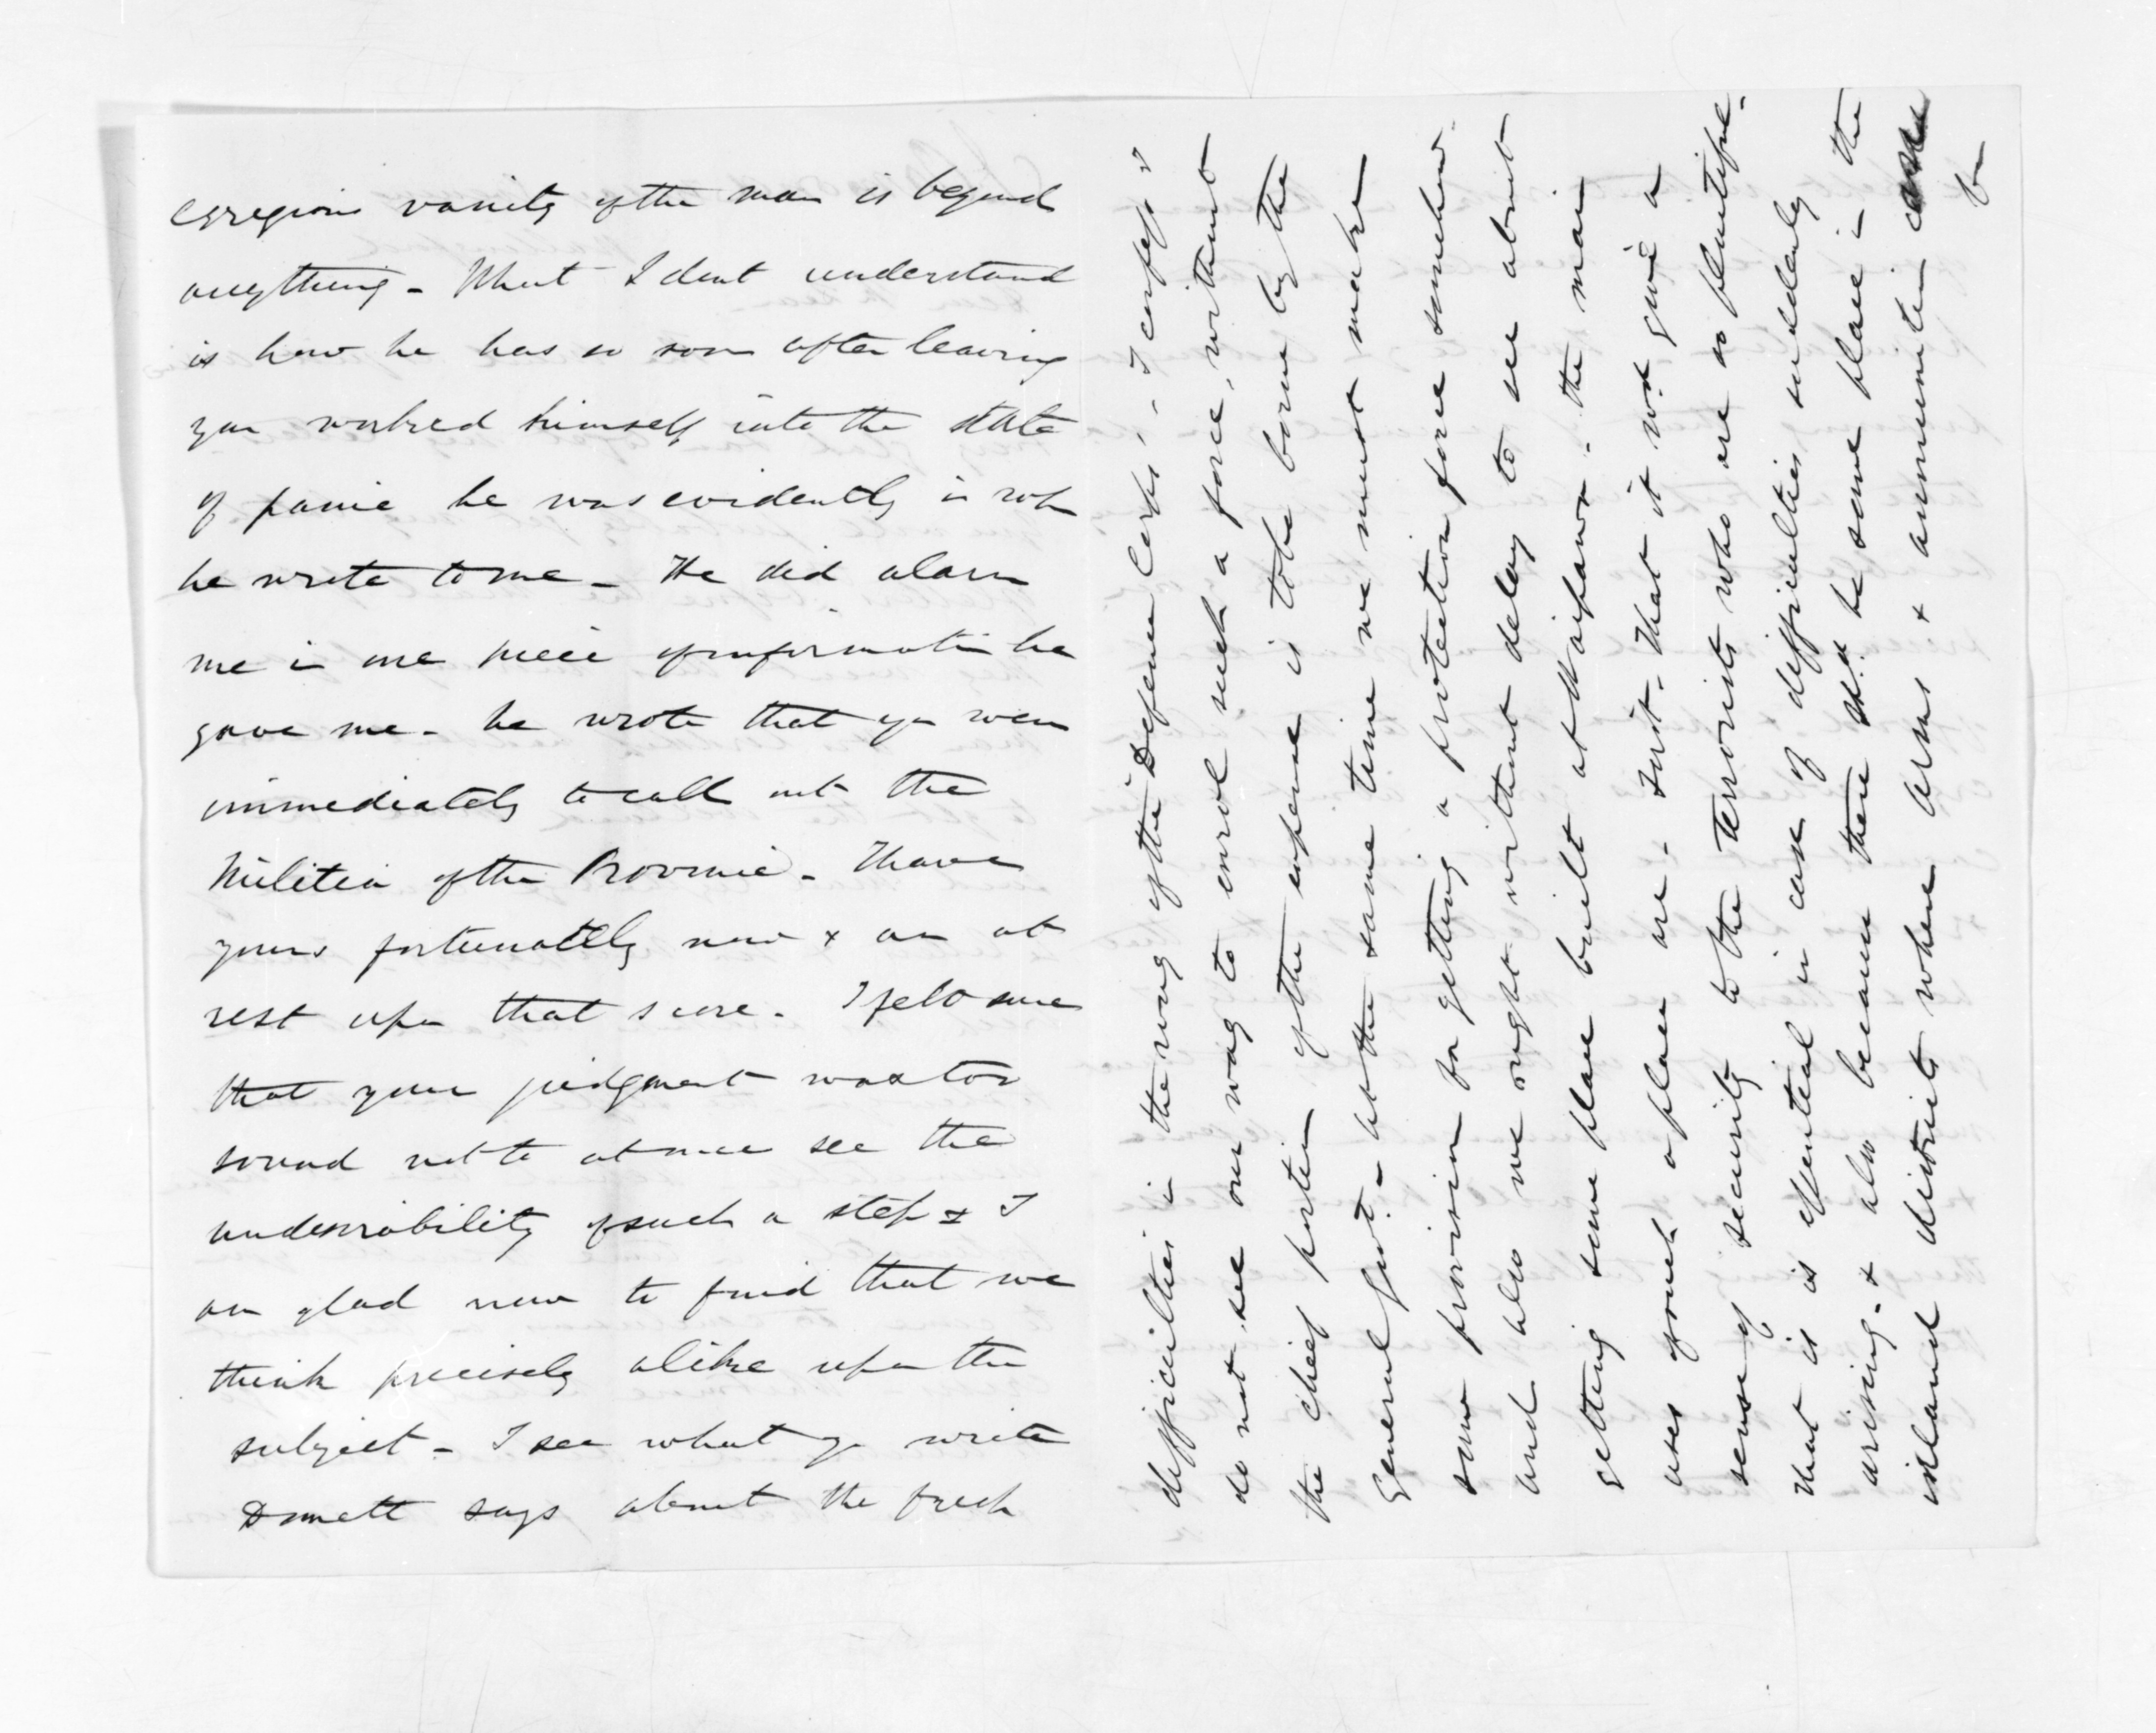 egregious vanity of the man is beyond
anything - What I dont understand
is how he has so soon after leaving
you worked himself into the state
of panic he was evidently in wh
he wrote to me - He did alarm
me in one piece of information he
gave me - he wrote that you were
immediately to call out the
Militia of the Province - I have
yours fortunately now & am at
rest upon that score. I felt sure
that your judgment was too
sound not to at once see the
undesirability of such a step & I
am glad now to find that we
think precisely alike upon the
subject - I see what you write
Domett says about the fresh
difficulties in the way of the Defence Corps - I confess I
do not see our way to enrol such a force, without
the chief portion of the expense is to be borne by the
General Govt. - at the same time we must make
some provision for getting a protection force somehow.
and also we ought without delay to see about
getting some place built at Waipawa - the main
uses of such a place are - First - That it wd give a
sense of security to the terrorists who are so plentiful -
What is is essential in case of difficulties suddenly
arising - & also because there shd be some place in the
inland districts where arms & ammunition can
be